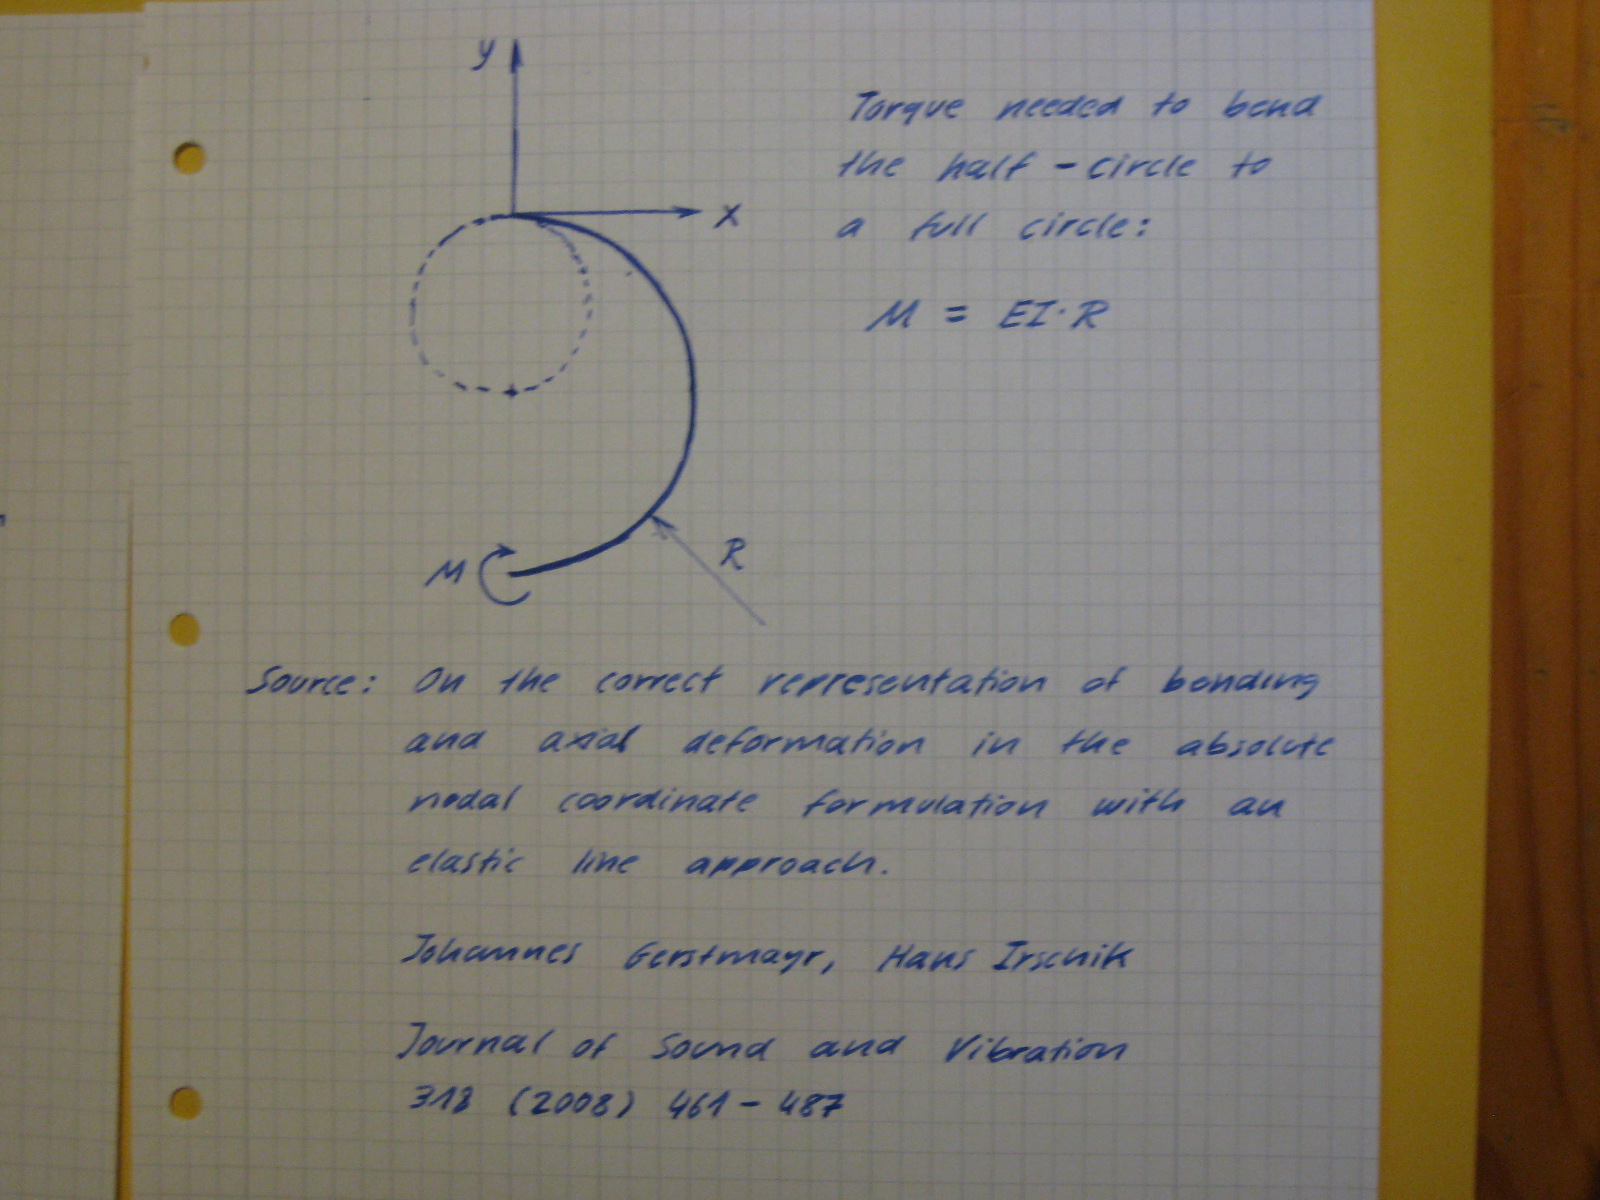 y
Torque needed to bend
the half - circle to
x
a full circle:
M = EI·R
M
R
Source: On the correct representation of bending
and axial deformation in the absolute
nodal coordinate formulation with an
elastic line approach.
Johannes Gerstmayr, Hans Irschik
Journal of Sound and Vibration
318 (2008) 461 - 487